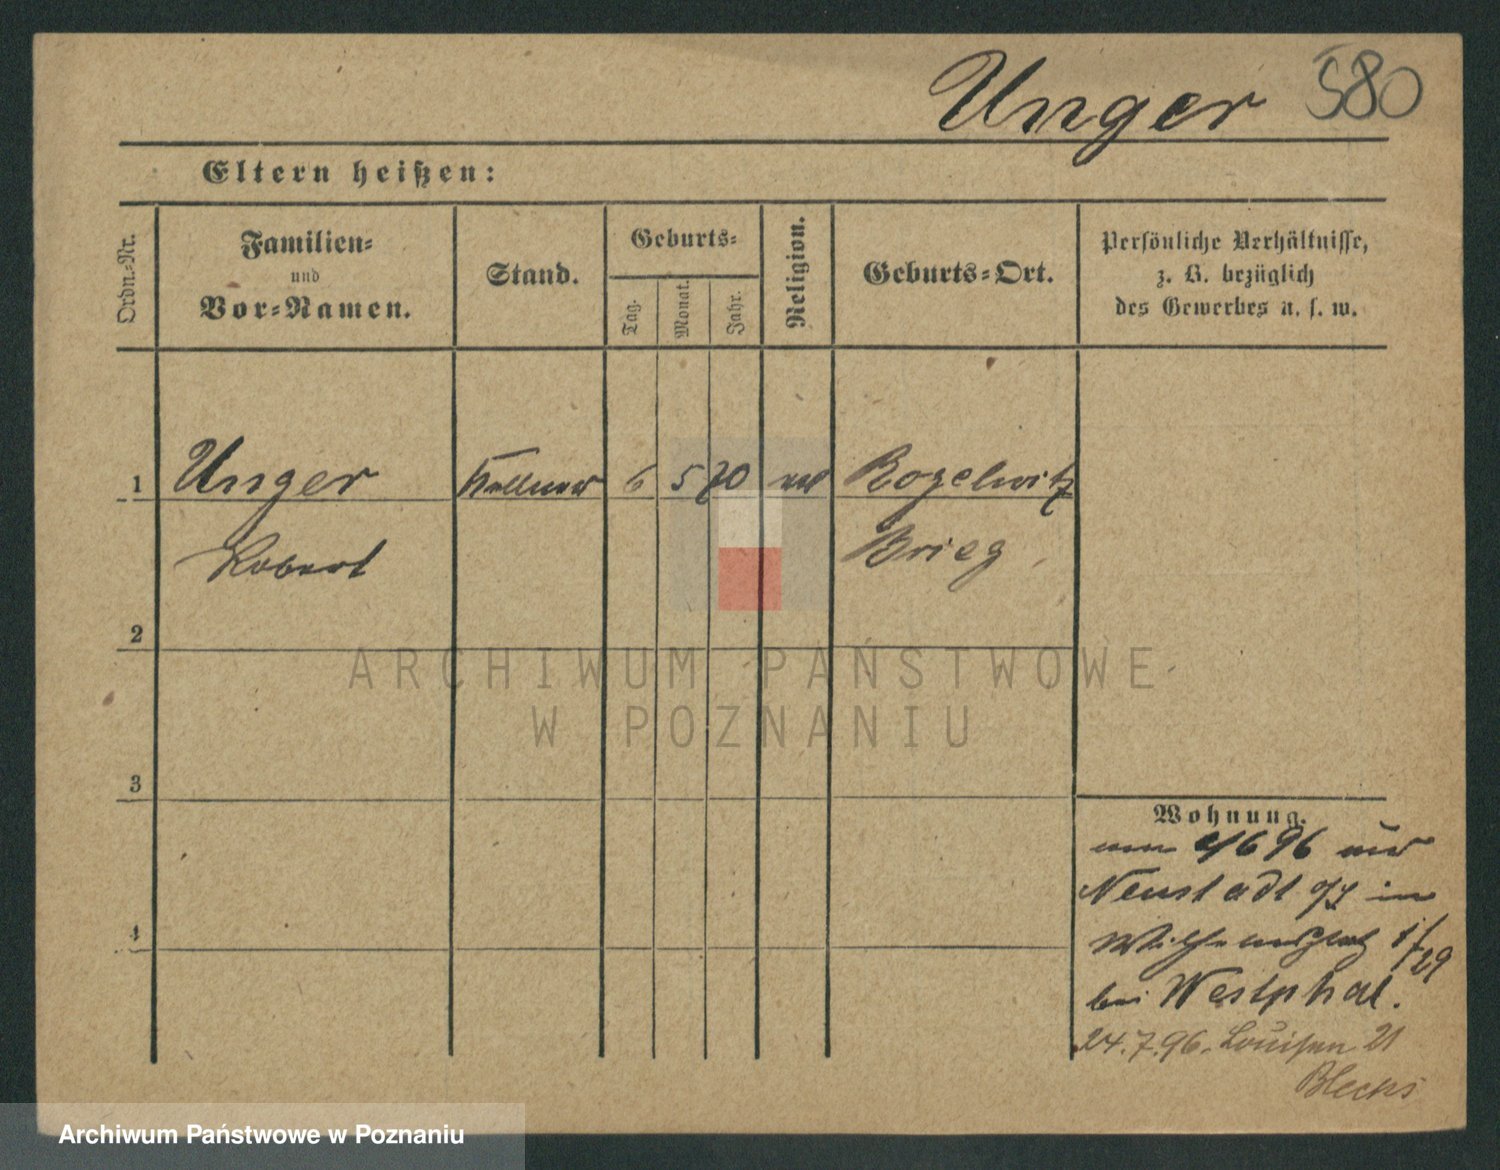 Unger 580
Eltern heißen:
Ordn.-Nr.
Familien-
und
Vor-Namen.
Stand.
Geburts-
Tag.
Monat.
Jahr.
Religion.
Geburts-Ort.
Persönliche Verhältnisse,
z. B. bezüglich
des Gewerbes u. s. w.
1 Unger Kellner 6 5 70 Rogelwitz
Robert Brieg
2
3
4
Wohnung.
96 aus
Neustadt in
Wilhelmsplatz
bei Westphal.
24.7.96. Louisen 21
ARCHIWUM PAŃSTWOWE
W POZNANIU
Archiwum Państwowe w Poznaniu